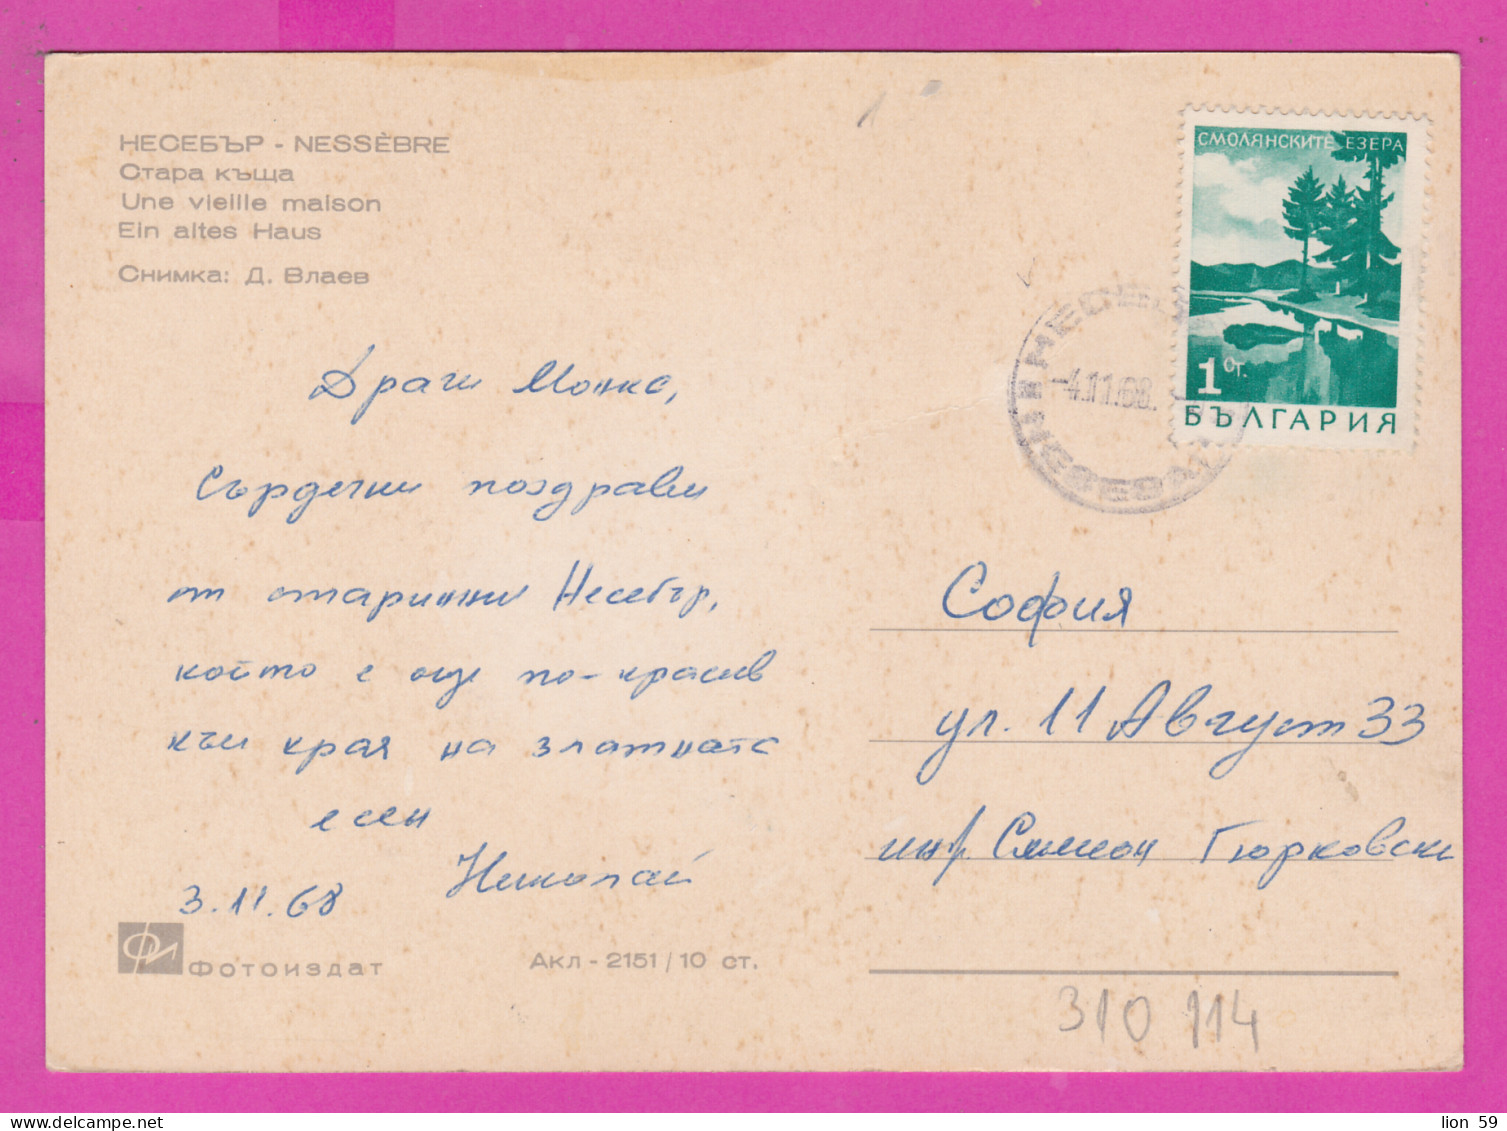 НЕСЕБЪР - NESSÈBRE
Стара къща
Une vieille maison
Ein altes Haus
Снимка: Д. Влаев
СМОЛЯНСКИТЕ ЕЗЕРА
1 От.
БЪЛГАРИЯ
-4.11.68.
Драги Монка,
Сърдечни поздрави
от старинни Несебър,
който е още по-красив
към края на златната
есен
Николай
3.11.68
София
ул. 11 Август 33
инж. Симеон Гюрковски
ФОТОИЗДАТ
Акл - 2151 / 10 ст.
310 114
lion 59